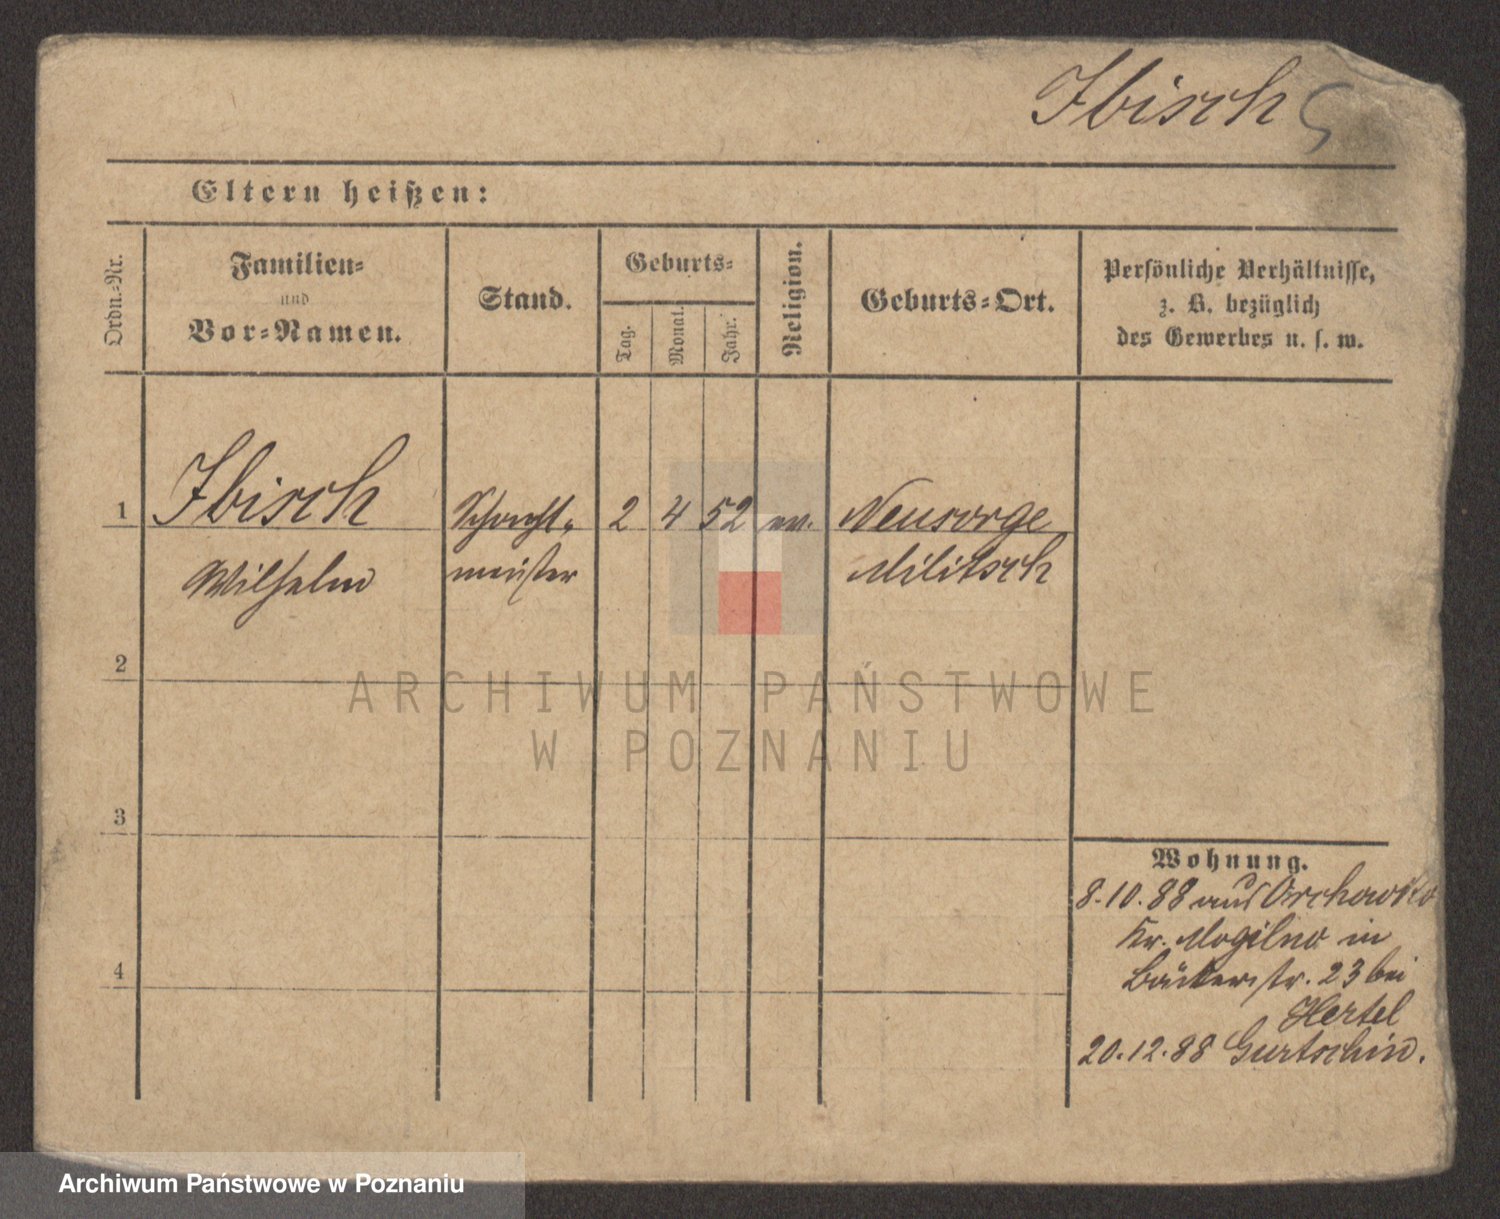 Ibisch
Eltern heißen:
Ordn.-Nr.
Familien-
und
Vor-Namen.
Stand.
Geburts-
Tag.
Monat.
Jahr.
Religion.
Geburts-Ort.
Persönliche Verhältnisse,
z. B. bezüglich
des Gewerbes u. s. w.
1 Ibisch Schacht- 2 4 52 ev. Neusorge
Wilhelm meister Militsch
2
3
4
Wohnung.
8.10.88 aus Orchowko
Kr. Mogilno in
Bäckerstr. 23 bei
Hertel
20.12.88 Gurtschin.
ARCHIWUM PAŃSTWOWE
W POZNANIU
Archiwum Państwowe w Poznaniu